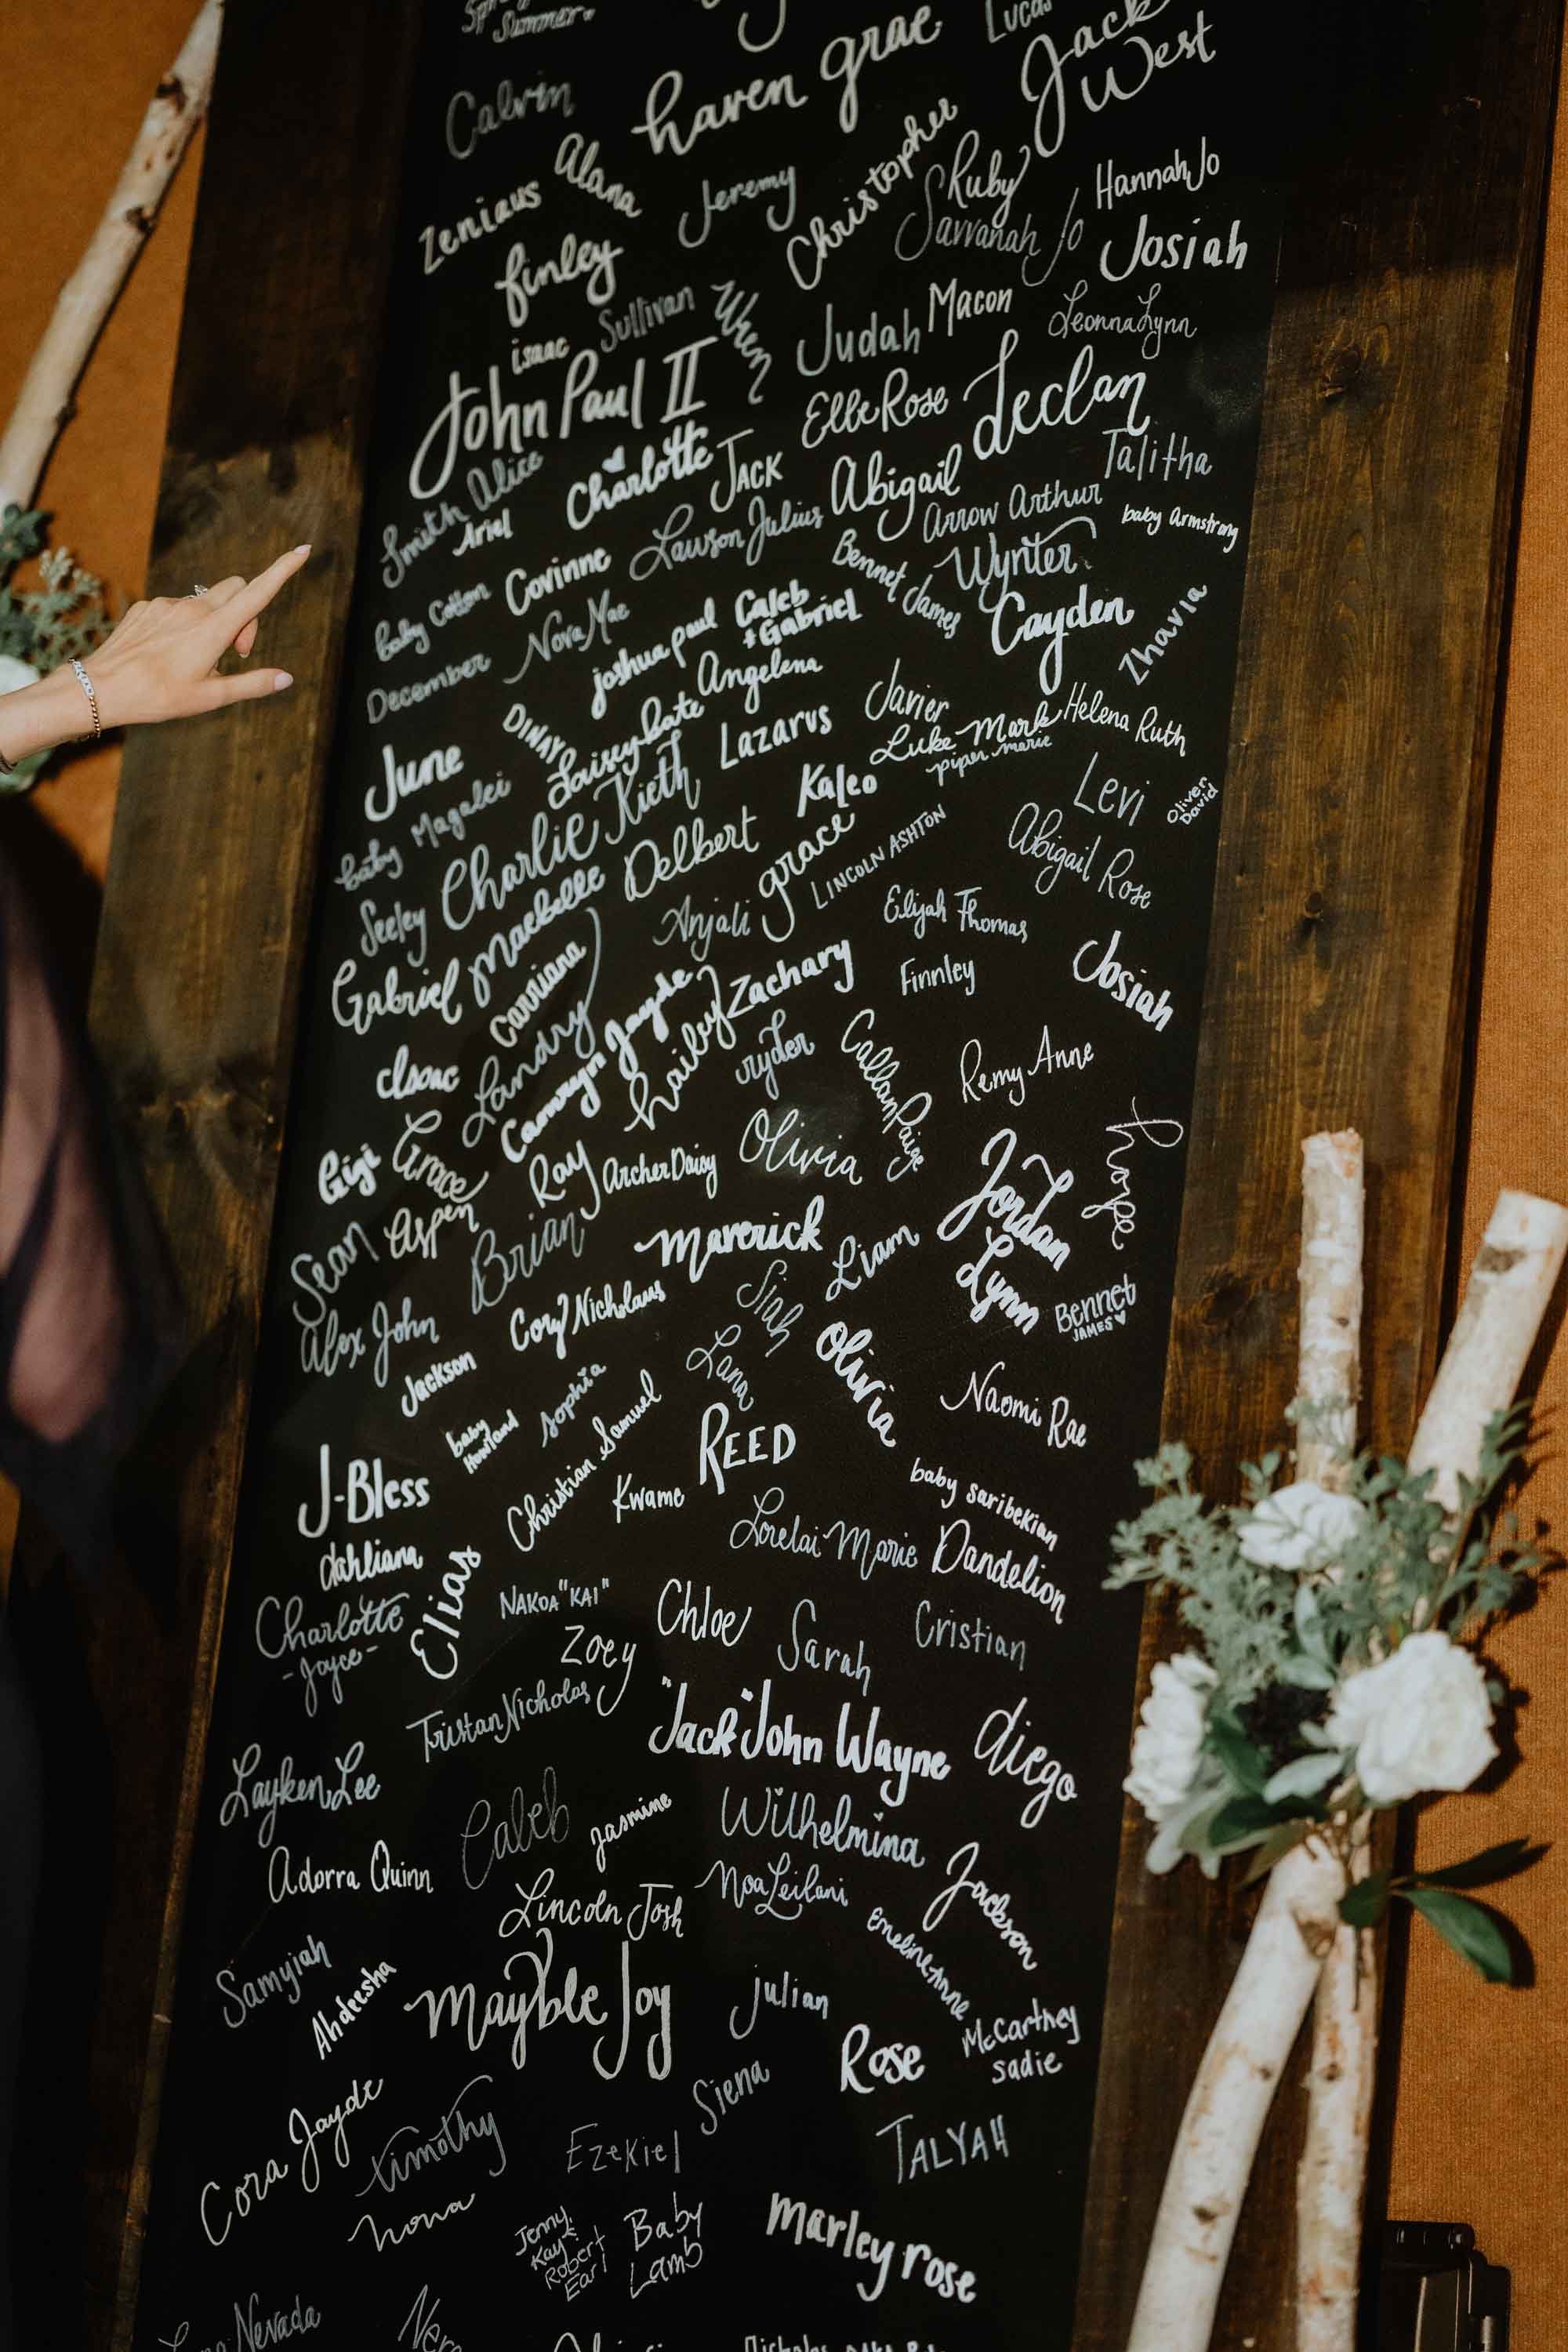 Summer
Lucas
haven grae
Jack
West
Calvin
Alana
Jeremy
Christopher
Ruby
HannahJo
Zeniaus
Savvanah Jo
Josiah
finley
isaac
Sullivan
Wren
Judah
Macon
LeonnaLynn
John Paul II
ElleRose
declan
Smith Alice
Charlotte
Jack
Abigail
Talitha
Ariel
Lawson Julius
Arrow Arthur
baby Armstrong
baby Cotton
Corinne
Bennet James
Wynter
December
NovaMae
joshua paul
Caleb
+Gabriel
Cayden
Zhavia
Angelena
June
DINAYO
Daisey Kate
Lazarus
Javier
Luke Mark
Helena Ruth
piper marie
baby Magalei
Charlie Kieth
Kaleo
Levi
Oliver
David
Seeley
Delbert
grace
LINCOLN ASHTON
Abigail Rose
Gabriel
Maebelle
Anjali
Elijah Thomas
Carriana
Zachary
Finnley
Josiah
Isaac
Landry
Camryn Jayde
hailey
ryder
Callan Paige
Remy Anne
Gigi
Grace
Ray
Archer Daisy
Olivia
hope
Sean
Aspen
Brian
Maverick
Liam
Jordan
Lynn
Alex John
Cory Nicholaus
Siah
Bennet
JAMES
Jackson
Lana
Olivia
Naomi Rae
baby
Howland
sophia
Christian Samuel
REED
J-Bless
Kwame
baby saribekian
dahliana
Elias
Lorelai Marie
Dandelion
Charlotte
-Joyce-
NAKOA "KAI"
Chloe
Sarah
Cristian
Zoey
Tristan Nicholas
"Jack" John Wayne
diego
Layken Lee
Caleb
jasmine
Wilhelmina
Adorra Quinn
Lincoln Josh
Noa Leilani
Jackson
Emeline Anne
Samyjah
Ahdeesha
Mayble Joy
julian
McCartney
sadie
Rose
Cora Jayde
timothy
Ezekiel
Siena
TALYAH
nona
Jenny
Kay &
Robert
Earl
Baby
Lamb
marley rose
Nevada